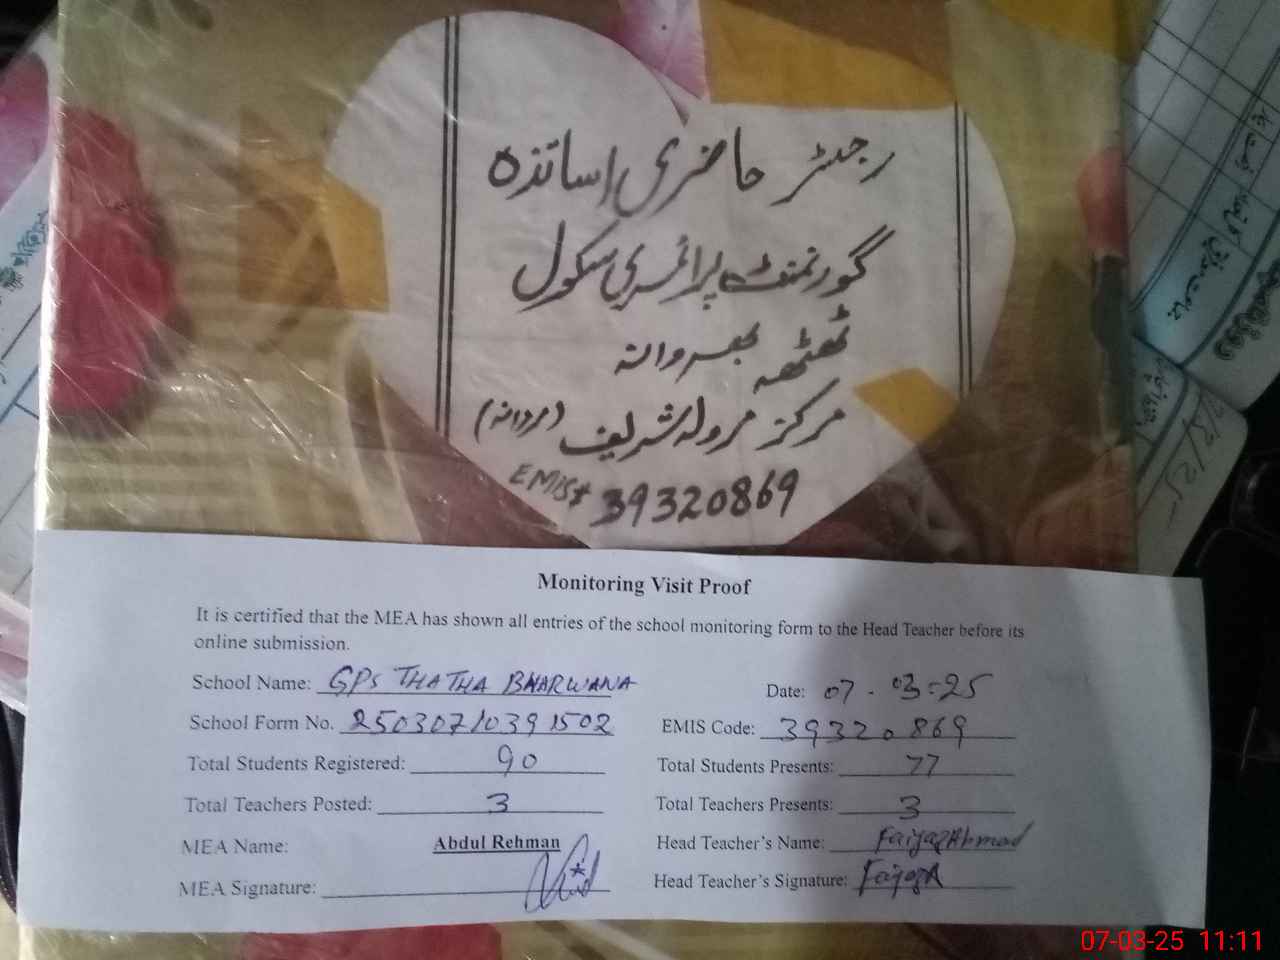 رجسٹر حاضری اساتذہ
گورنمنٹ پرائمری سکول
ٹھٹھہ بھروانہ
مرکز مرولہ شریف (مردانہ)
EMIS# 39320869
Monitoring Visit Proof
It is certified that the MEA has shown all entries of the school monitoring form to the Head Teacher before its
online submission.
School Name: GPS THATHA BHARWANA Date: 07-03-25
School Form No. 25030710391502 EMIS Code: 39320869
Total Students Registered: 90 Total Students Presents: 77
Total Teachers Posted: 3 Total Teachers Presents: 3
MEA Name: Abdul Rehman Head Teacher's Name: Faiyaz Ahmad
MEA Signature: Head Teacher's Signature: FaiyazA
07-03-25 11:11